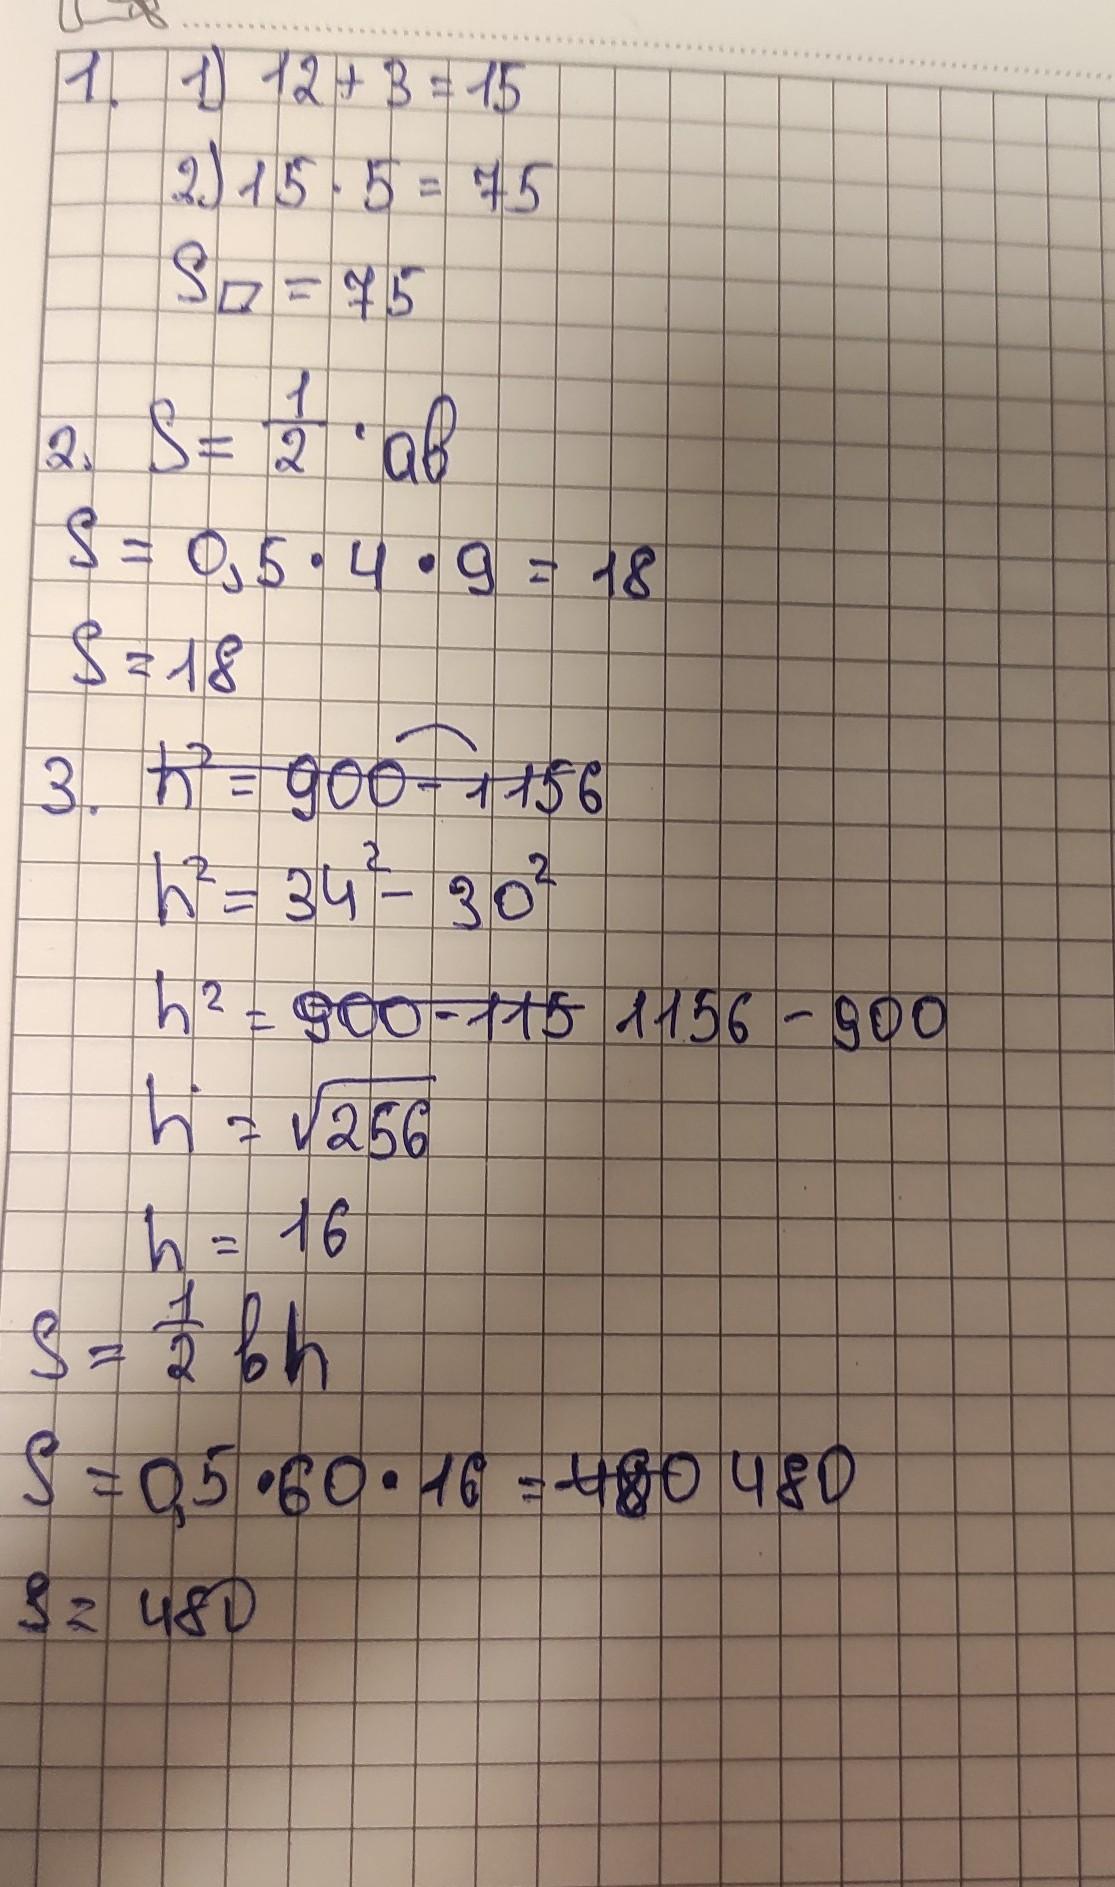 1. 1) 12 + 3 = 15
2) 15 · 5 = 75
S▱ = 75
2. S = 1/2 · ab
S = 0,5 · 4 · 9 = 18
S = 18
3. h² = 900 - 1156
h² = 34² - 30²
h² = 900 - 115 1156 - 900
h = √256
h = 16
S = 1/2 bh
S = 0,5 · 60 · 16 = 480 480
S = 480